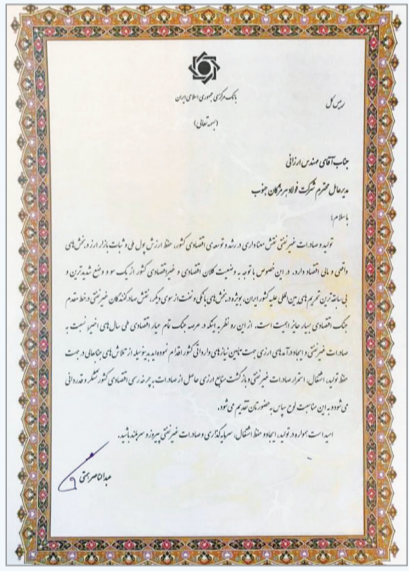 بانک مرکزی جمهوری اسلامی ایران
رییس کل
(بسمه تعالی)
جناب آقای مهندس ارزانی
مدیرعامل محترم شرکت فولاد هرمزگان جنوب
با سلام؛
تولید و صادرات غیرنفتی نقش معناداری در رشد و توسعه‌ی اقتصادی کشور، حفظ ارزش پول ملی و ثبات بازار ارز و بخش‌های
واقعی و مالی اقتصاد دارد. در این خصوص با توجه به وضعیت کلان اقتصادی و غیراقتصادی کشور از یک سو و وضع شدیدترین و
بی سابقه‌ترین تحریم های بین المللی علیه کشور ایران، بویژه در بخش‌های بانکی و نفت از سوی دیگر، نقش صادرکنندگان غیرنفتی در خط مقدم
جنگ اقتصادی بسیار حائز اهمیت است. از این رو نظر به اینکه در عرصه جنگ تمام عیار اقتصادی طی سال های اخیر نسبت به
صادرات غیرنفتی و ایجاد درآمدهای ارزی جهت تامین نیازهای وارداتی کشور اقدام نموده‌اید بدینوسیله از تلاش‌های جنابعالی در جهت
حفظ تولید، اشتغال، استمرار صادرات غیرنفتی و بازگشت منابع ارزی حاصل از صادرات به چرخه رسمی اقتصادی کشور تشکر و قدردانی
می شود و به این مناسبت لوح سپاس به حضورتان تقدیم می شود.
امید است همواره در تولید، ایجاد و حفظ اشتغال، سرمایه گذاری و صادرات غیرنفتی پیروز و سربلند باشید.
عبدالناصر همتی